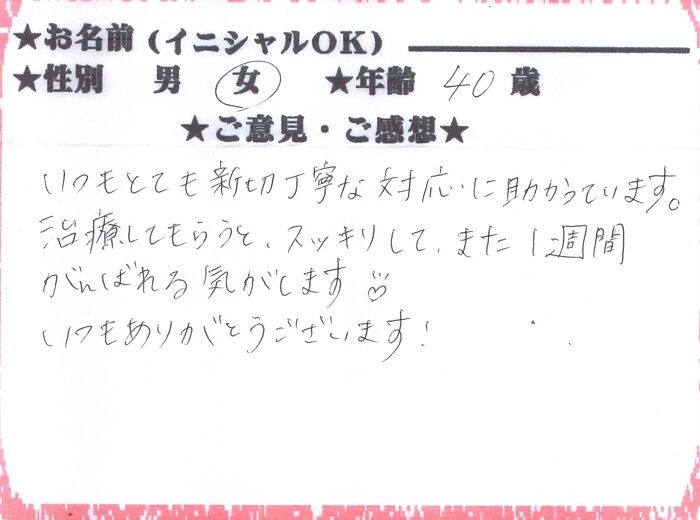 ★お名前(イニシャルOK)
★性別 男 女 ★年齢 40 歳
★ご意見・ご感想★
いつもとても新切丁寧な対応に助かっています。
治療してもらうと、スッキリして、また1週間
がんばれる気がします♡
いつもありがとうございます!